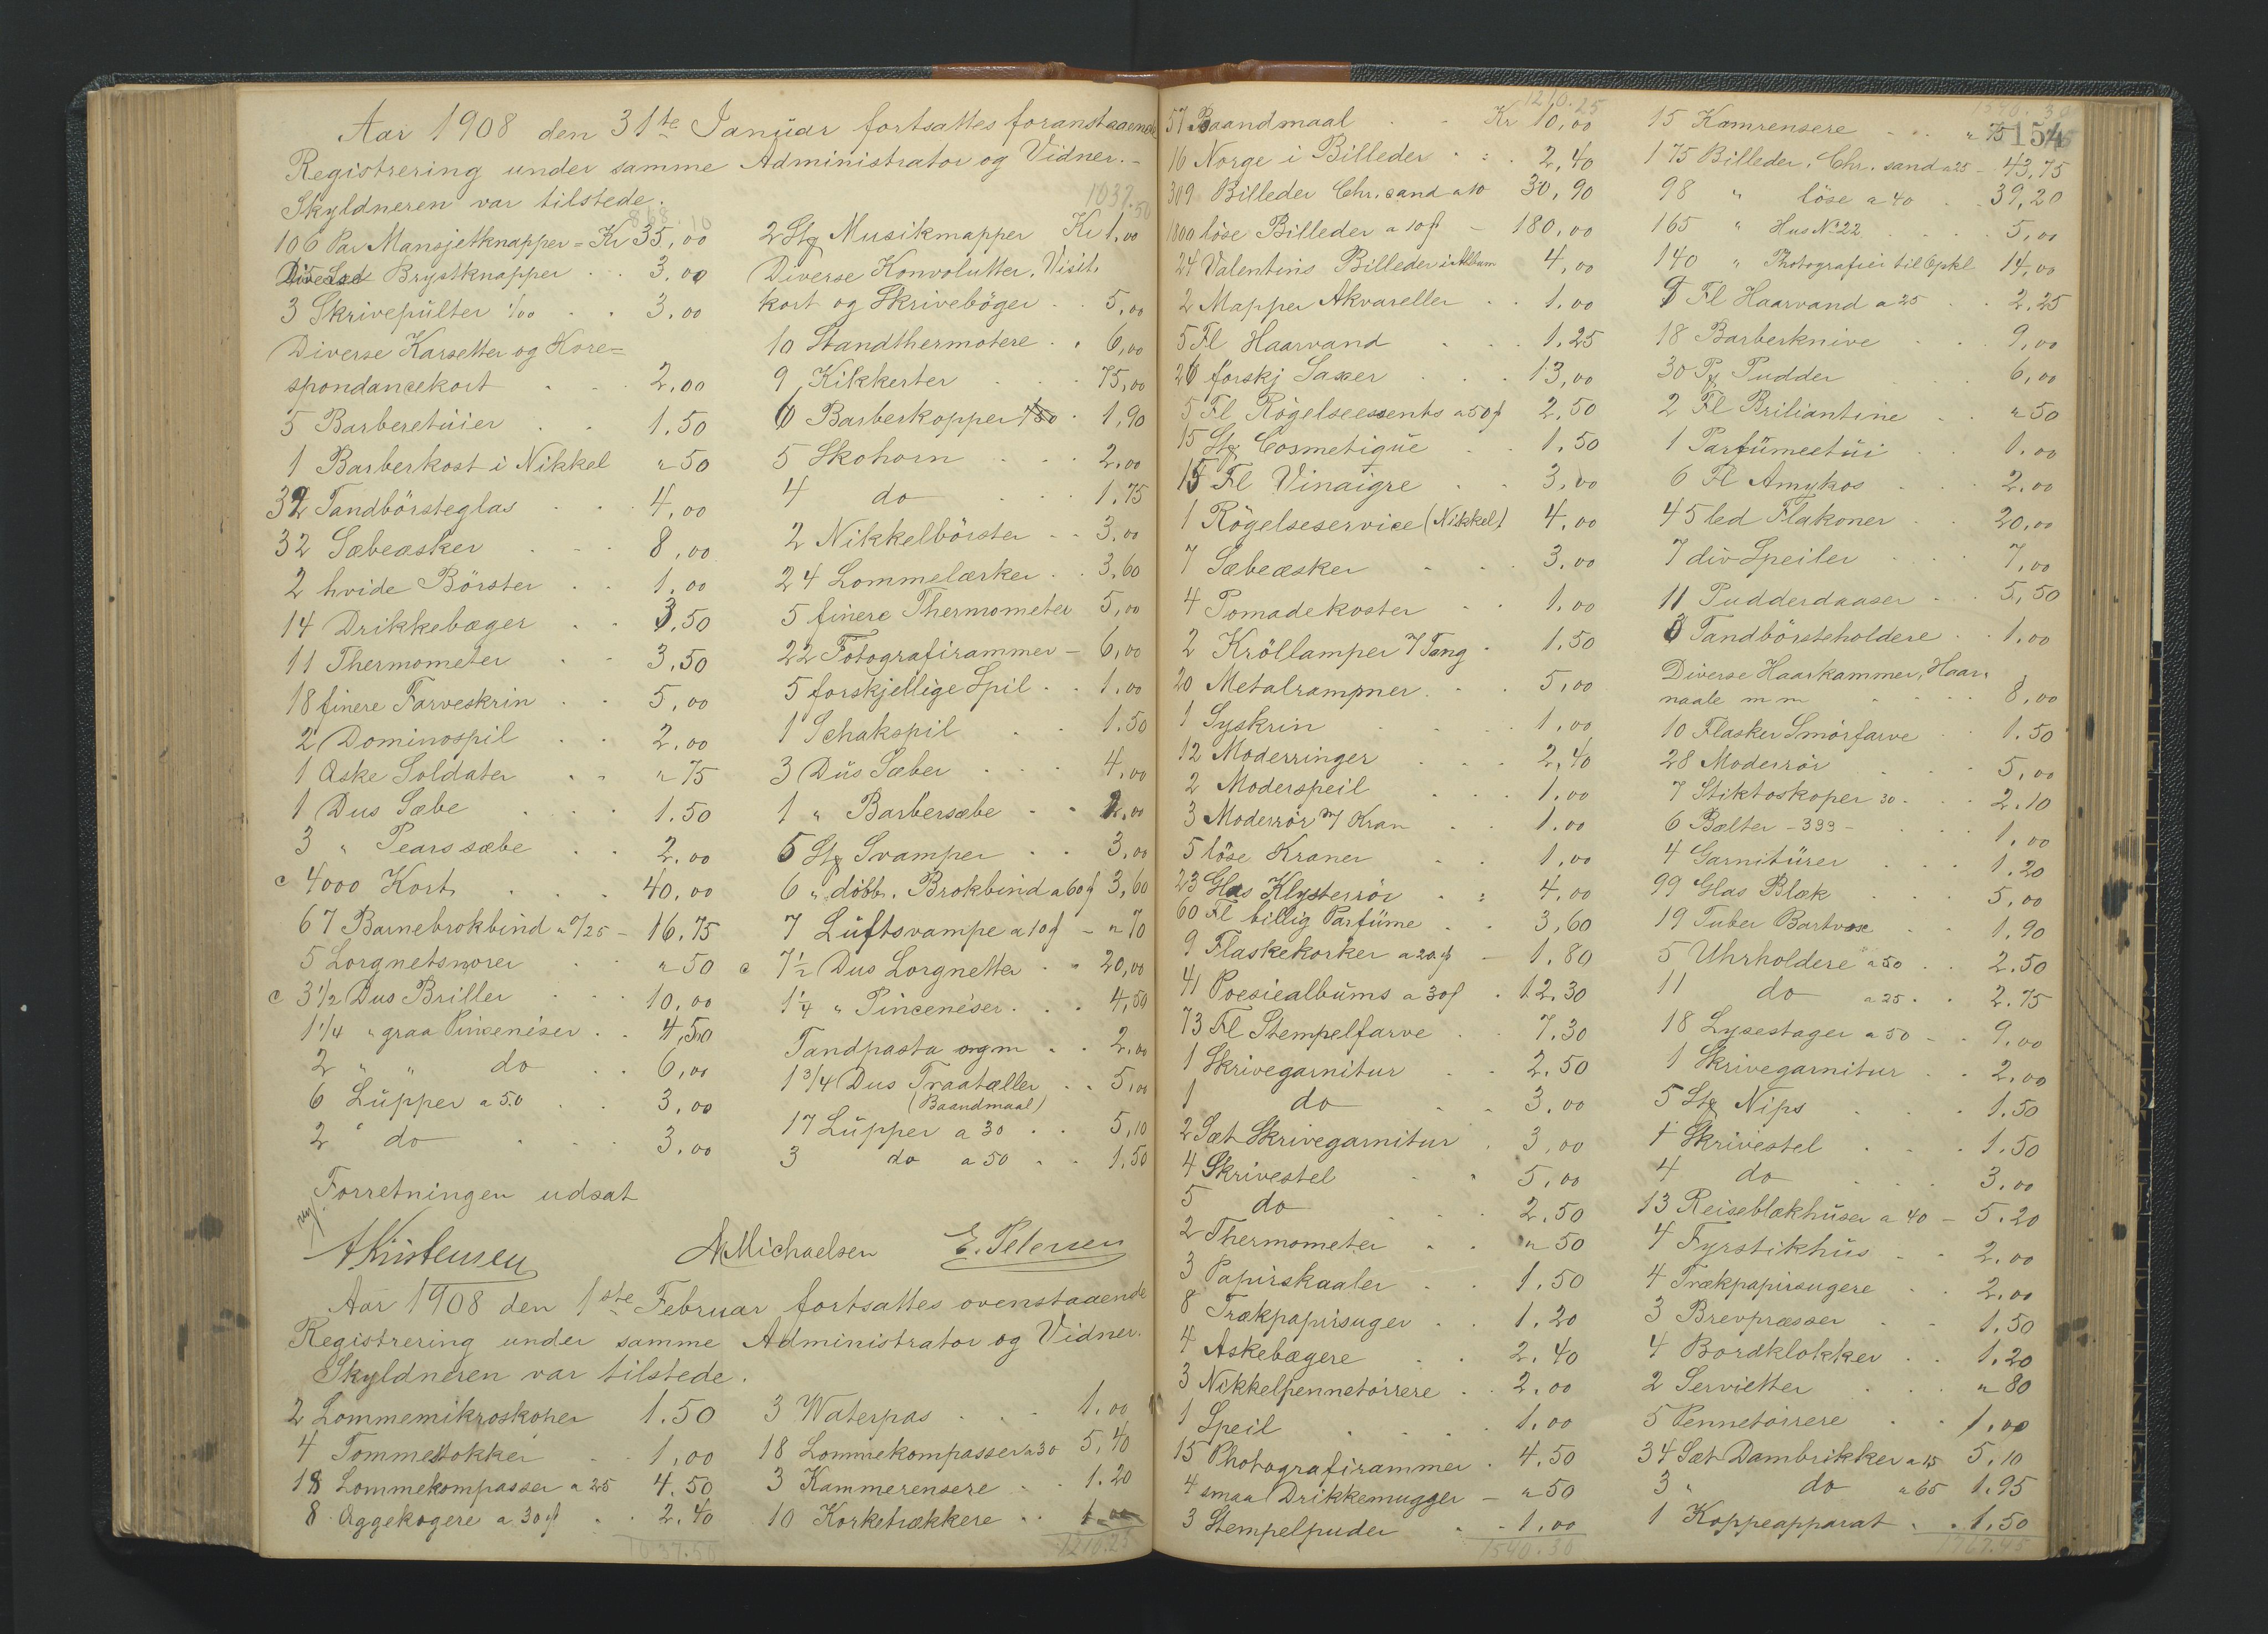 Aar 1908 den 31te Januar fortsattes foranstaaende
Registrering under samme Administrator og Vidner. -
Skyldneren var tilstede.
868.10
106 Par Mansjetknapper = Kr 35,00
Brystknapper . . 3,00
3 Skrivepülter 1/00 . . 3,00
Diverse Karsetter og Kore=
spondancekort . . . 2,00
5 Barberetüier . . 1.50
1 Barberkost i Nikkel " 50
32 Tandbörsteglas . . . 4,00
32 Sæbeæsker . . . 8,00
2 hvide Börster . . 1.00
14 Drikkebæger . . 3.50
11 Thermometer . . 3.50
18 finere Farveskrin . . 5,00
2 Dominospil . . 2,00
1 Æske Soldater . . " 75
1 Dus Sæbe . . . 1.50
3 " Pears sæbe . . 2.00
c 4000 Kort . . . 40,00
67 Barnebrokbind a 0/25 - 16.75
5 Lorgnetsnorer . . " 50
c 3 1/2 Dus Briller . . . 10,00
1 1/4 " graa Pinceniser . . 4,50
2 " " do . . 6,00
6 Lüpper a 50 . . 3,00
2 " do . . . 3,00
1037.50
2 Stk Musikmapper Kr 1,00
Diverse Konvolutter, Visit.
kort og Skriveböger . . 5,00
10 Standthermotere . . 6,00
9 Kikkerter . . . 75,00
6 Barberkopper . 1,90
5 Skohorn . . . 2,00
4 do . . . 1.75
2 Nikkelbörster . . 3.00
24 Lommelærker . . 3,60
5 finere Thermometer 5,00
22 Fotografirammer - 6,00
5 forskjellige Spil . . 1.00
1 Schakspil . . 1.50
3 Düs Sæber . . . 4,00
1 " Barbersæbe . . 2,00
5 Stk Svamper . . 3,00
6 " dobb. Brokbind a 60 ø 3,60
7 Lüftsvampe a 10 ø - " 70
c 7 1/2 Dus Lorgnetter . . 20,00
1 1/4 " Pinceniser . . . 4,50
Tandpasta ogm . . 2,00
1 3/4 Dus Traatæller . . 5,00
(Baandmaal)
17 Lüpper a 30 . . 5,10
3 do a 50 . . 1,50
Forretningen udsat
AKristensen
AMichaelsen
E. Petersen
Aar 1908 den 1ste Februar fortsattes ovenstaaende
Registrering under samme Administrator og Vidner.
Skyldneren var tilstede.
2 Lommemikroskoper 1.50
4 Tommestokker . 1,00
18 Lommekompasser a 25 4.50
8 Æggekogere a 30 ø . . 2.40
1037.50
3 Waterpas . . . 1.00
18 Lommekompasser a 30 5,40
3 Kammerensere . . 1.20
10 Korketrækkere . . 1.00
1210.25
1210.25
57 Baandmaal . . Kr 10,00
16 Norge i Billeder . . . 2,40
309 Billeder Chr. sand a 10 30,90
1800 löse Billeder a 10 ø - 180,00
24 Valentins Billeder i Album 4,00
2 Mapper Akvareller . . 1.00
5 Fl Haarvand . . . 1,25
26 forskj Saxer . . . 13,00
5 Fl Rögelseessents a 50 ø 2,50
15 Stk Cosmetique . . 1.50
15 Fl Vinaigre . . 3,00
1 Rögelseservice (Nikkel) 4,00
7 Sæbeæsker . . . 3,00
4 Pomadekoster . . 1,00
2 Kröllamper 7 Tang . 1.50
20 Metalrammer . . . 5,00
1 Syskrin . . . 1,00
12 Moderringer . . . 2,40
2 Moderspeil . . . 1.00
3 Moderrör m/ Kran . . 1.00
5 löse Kraner . . 1,00
23 Glas Klysterrör . . 4,00
60 Fl billig Parfüme . . 3,60
9 Flaskekorker a 20 ø - 1.80
41 Poesiealbums a 30 ø . 12.30
73 Fl Stempelfarve . . 7.30
1 Skrivegarnitur . . 2.50
1 do . . 3.00
2 Sæt Skrivegarnitur . 3,00
4 Skrivestel . . 5.00
5 do . . . 2.50
2 Thermometer . . " 50
3 Papirskaaler . . 1.50
8 Trækpapirsuger . . 1.20
4 Askebægere . . 2.40
3 Nikkelpennetörrere . . 2.00
1 Speil . . . 1.00
15 Photografirammer . 4.50
4 smaa Drikkemugger - " 50
3 Stempelpuder . . 1.00
1540.30
1540.30
154
15 Kamrensere . . . " 75
175 Billeder, Chr. sand a 25 - 43,75
98 " löse a 40 . . 39,20
165 " Hus No 22 . . . . 5,00
140 " Photografier til Opkl 14,00
9 Fl Haarvand a 25 . . 2,25
18 Barberknive . . . 9,00
30 Pk Pudder . . 6,00
2 Fl Briliantine . . " 50
1 Parfümeetui . . 1.00
6 Fl Amykos . . . 2.00
45 led Flakoner . . 20,00
7 div Speiler . . . 7,00
11 Pudderdaaser . . . 5,50
3 Tandbörsteholdere . . 1,00
Diverse Haarkammer, Haar=
naale m m . . . 8,00
10 Flasker Smörfarve . . 1.50
28 Moderrör . . . 5,00
7 Stiktoskoper 30 . . . 2.10
6 Bælter - 399 - . . . 1,00
4 Garnitürer . . . 1.20
99 Glas Blæk . . . 5,00
19 Tuber Bartvoxe . . 1,90
5 Uhrholdere a 50 . . 2.50
11 do a 25 . . 2.75
18 Lysestager a 50 - . 9,00
1 Skrivegarnitur . . 2,00
5 Stk Nips . . . 1.50
1 Skrivestel . . . 1.50
4 do . . . 3.00
13 Reiseblækhüser a 40 - 5.20
4 Fyrstikhüs . . 2,00
4 Trækpapirsugere . . 2,00
3 Brevpræsser . . 1.50
4 Bordklokker . . 1.20
2 Servietter . . . " 80
5 Pennetörrere . . 1.00
34 Sæt Dambrikker a 15 5,10
3 " do a 65 1.95
1 Koppeapparat . . 1.50
1767.45